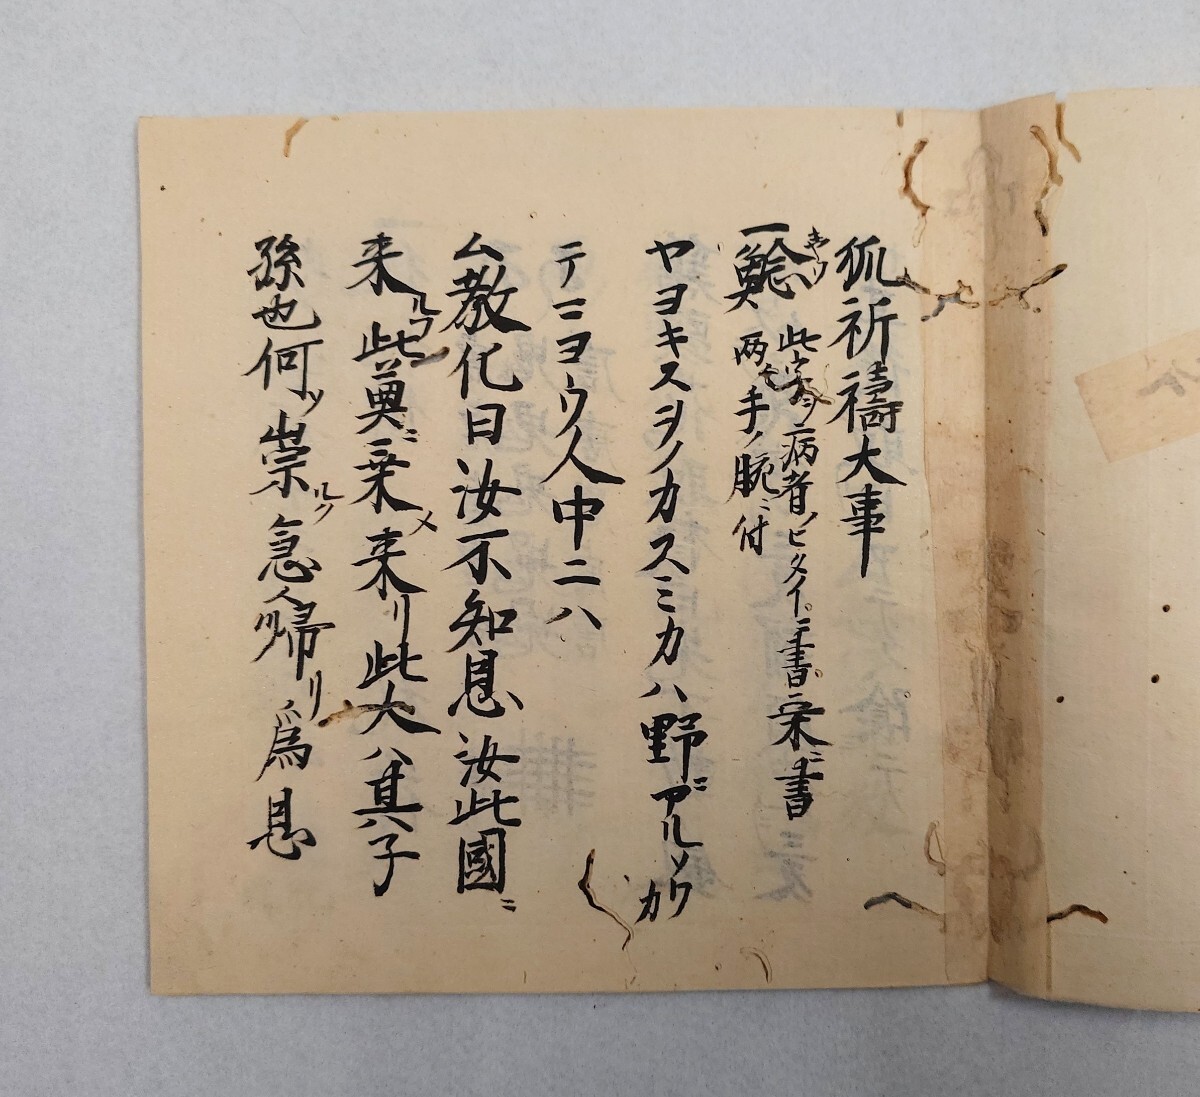 狐祈禱大事
一鯰 此字ヲ病者ノヒタイニ書。朱ニ書
両ノ手ノ腕ニ付
ヤヨキスヲノカスミカハ野ニアルソウカ
テニヨウ人中ニハ
ム教化曰汝不知恩汝此國ニ
来ルフ此奠ニ乗メ来リ此犬ハ其子
孫也何ソ祟ルソ急帰リ為恩